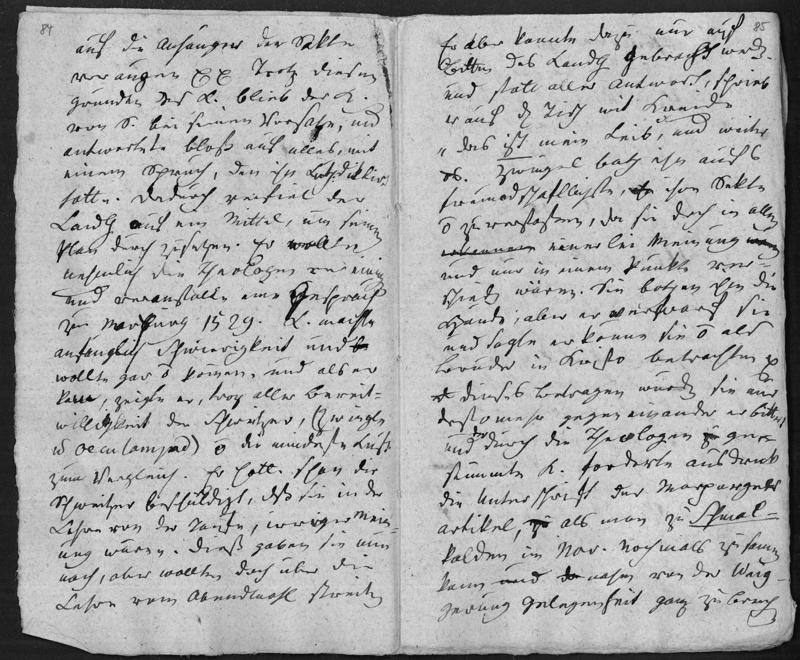 84
auf die Anhänger der Sekte
Trotz diesen
Gründen des L. blieb der K.
von S. bei seinem Vorsatze, und
antwortete bloß auf alles, mit
einem Spruch, den ihm Luth. diktirt
hatte. Dadurch verfiel der
Landg auf ein Mittel, um seinen
Plan durch zusetzen. Er wollte
nehmlich die Theologen vereinigen
und veranstalte eine Gespräch
zu Marburg 1529. L. machte
anfänglich Schwierigkeit und
wollte gar ō komen, und als er
kam, zeigte er, trotz aller Bereit-
willigkeit der Schweitzer, (Zwingli
u Oecolampad) ō die mindeste Lust
zum Vergleich. Er hatte schon die
Schweitzer beschuldigt, daß sie in der
Lehre von der Taufe, irriger Mein-
ung wären. Dieß gaben sie nun
nach, aber wollten doch über die
Lehre vom Abendmahl streiten
85
Er aber konnte dazu nur auf
Bitten des Landg gebracht werd.
und statt aller Antwort, schrieb
er auf d Tisch mit Kreide
"das ist mein Leib", und weiter
Zwingel bath ihn aufs
freundschaftlichste, ihre Sekte
ō zu verstoßen, da sie doch in allen
einerlei Meinung
und nur in einem Punkte ver-
schieden wären. Sie bothen ihm die
Hände, aber er verwarf sie
und sagte er könne sie ō als
Brüder in Kristo betrachten
dieses Betragen wurden sie nur
desto mehr gegen einander erbittert
und der durch die Theologen ge-
stimmte K. forderte ausdrük
die Unterschrift der Marpurger
Artikel, als man zu Schmal-
kalden im Nov. nochmals zusamen
kam und nahm von der Weig-
gerung Gelegenheit ganz zu brech